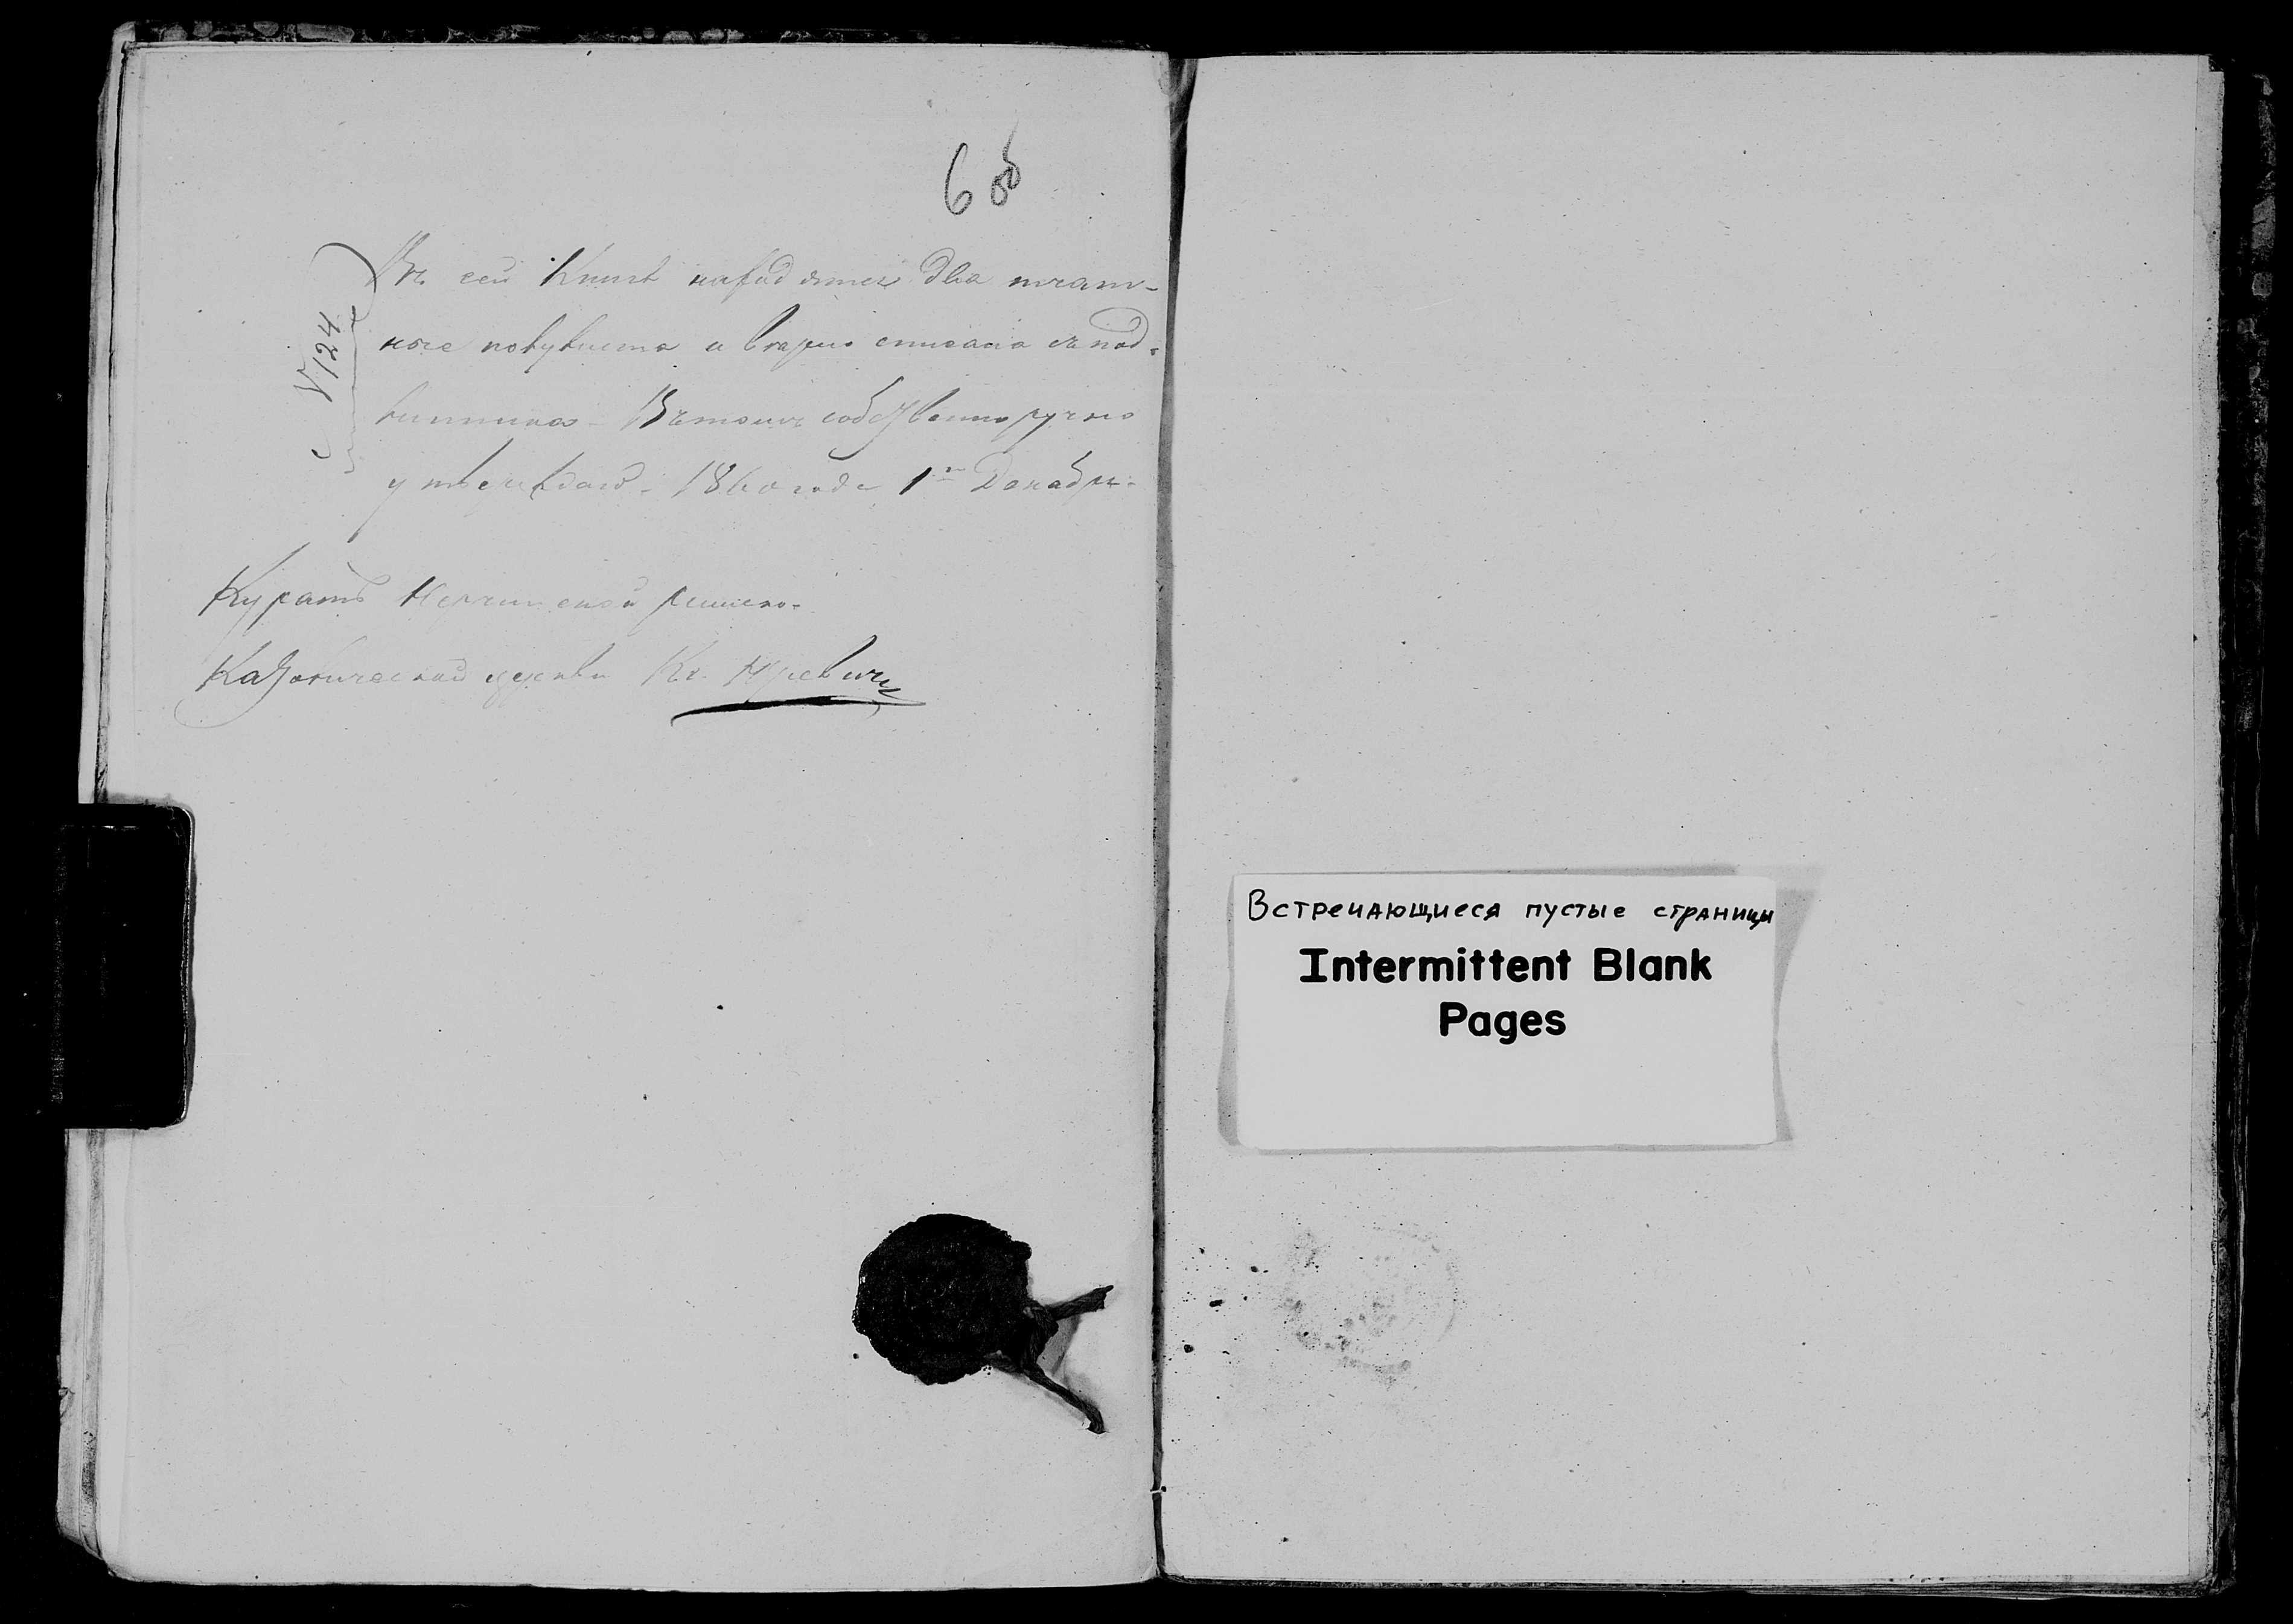 6 об
№ 124
Въ сей Книгѣ находятся два печат-
ные полулиста и вѣрно списана съ под-
линника. Въ томъ собственноручно
утверждаю. 1860 года 1го Декабря.
Куратъ Нерчинской римско-
Католической церкви Кс.
Встречающиеся пустые страницы
Intermittent Blank
Pages